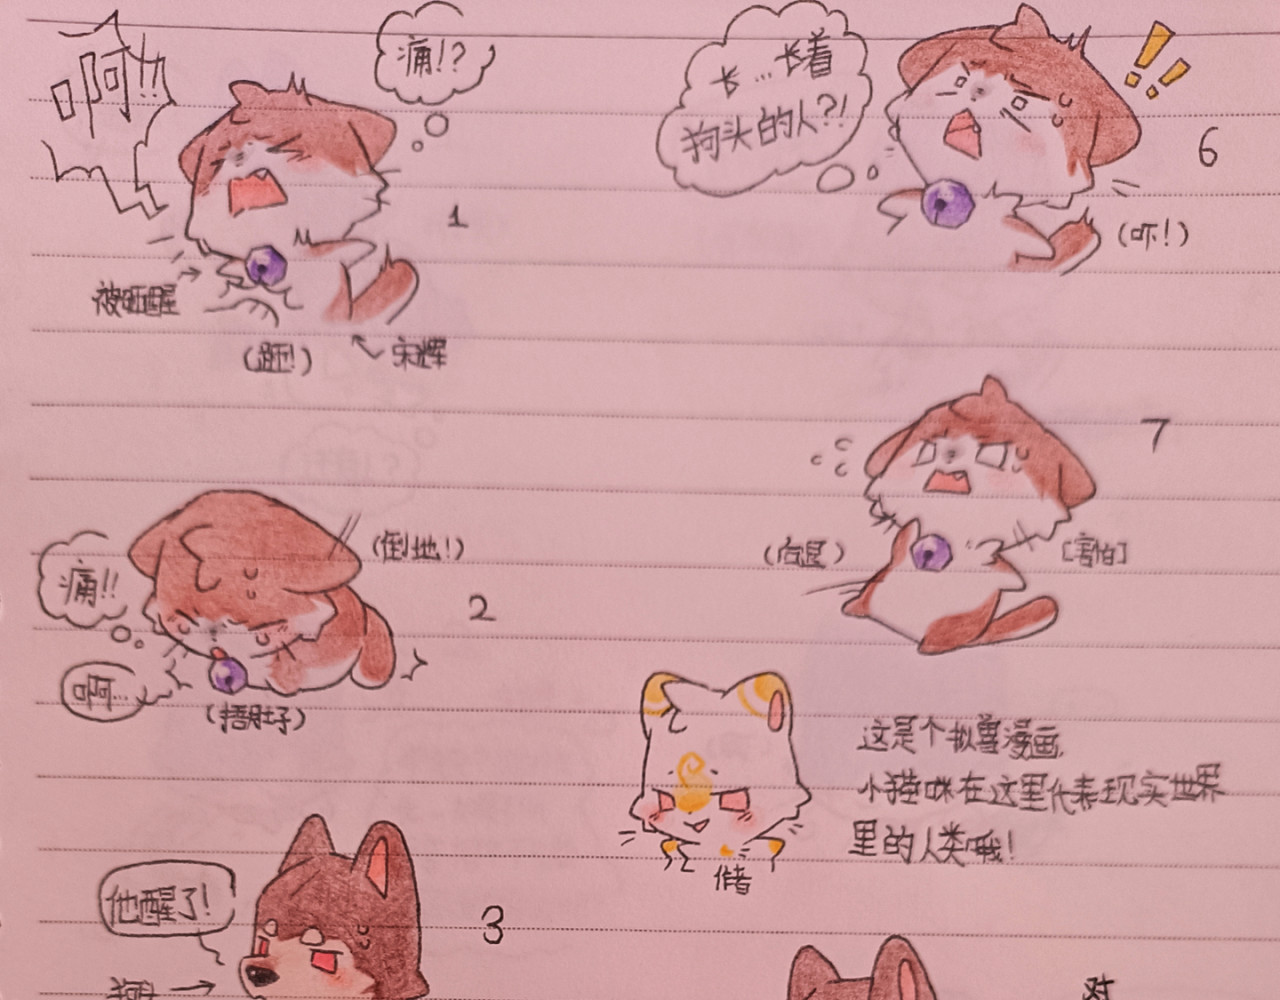 啊!!
痛!?
1
被砸醒
(砸!)
宋辉
(倒地!)
痛!!
啊…
(捂肚子)
2
他醒了!
3
长…长着
狗头的人?!
6
(吓!)
7
(后退)
[害怕]
这是个拟兽漫画,
小猫咪在这里代表现实世界
里的人类哦!
作者
对